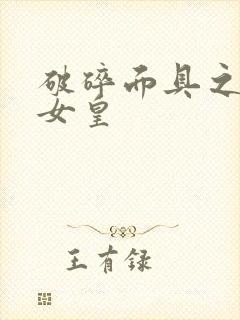 破碎而具之
女皇
王有録